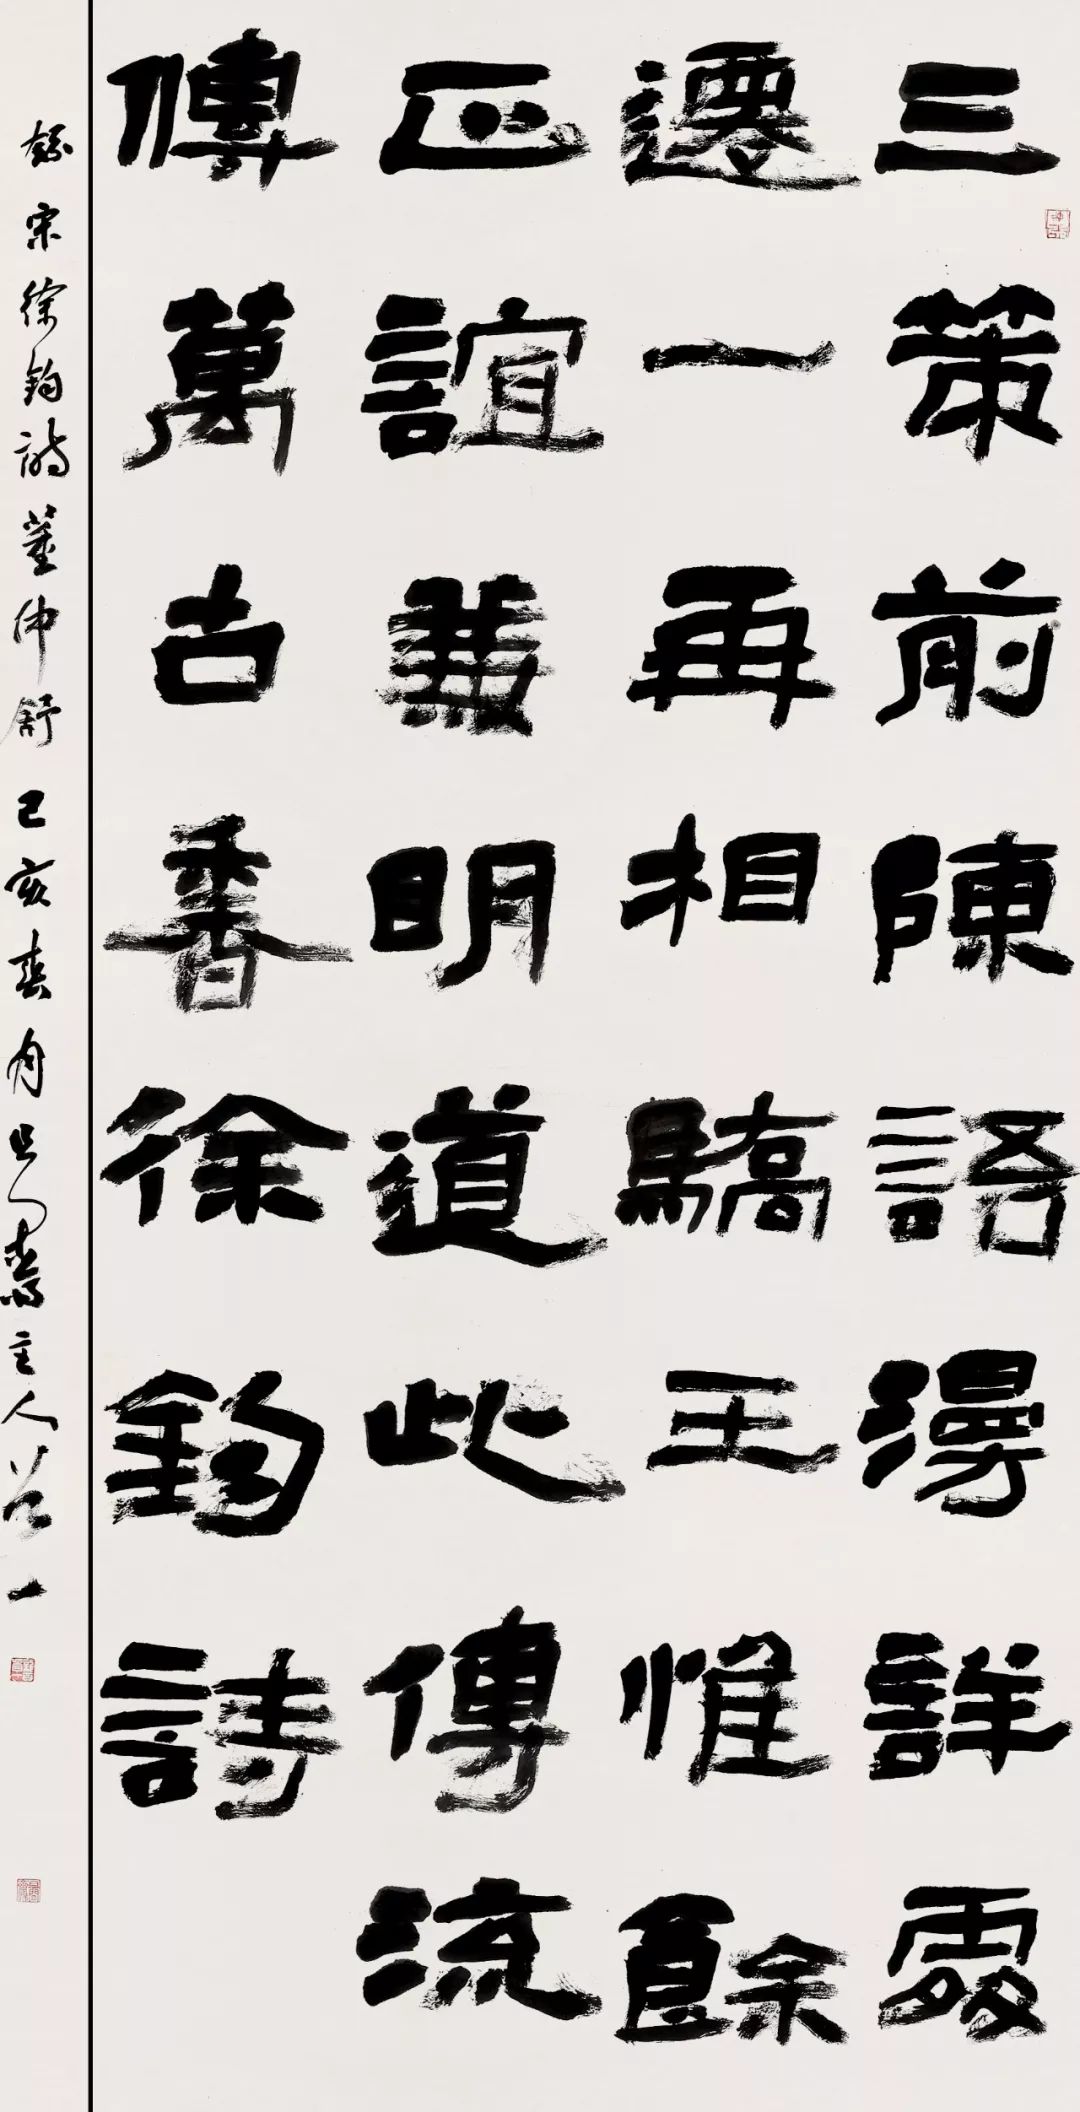 三策前陳語漫詳
遷一再相驕王惟餘
正誼兼明道此傳流
傳萬古香徐鈞詩
錄宋徐鈞詩董仲舒己亥春月齋主人一